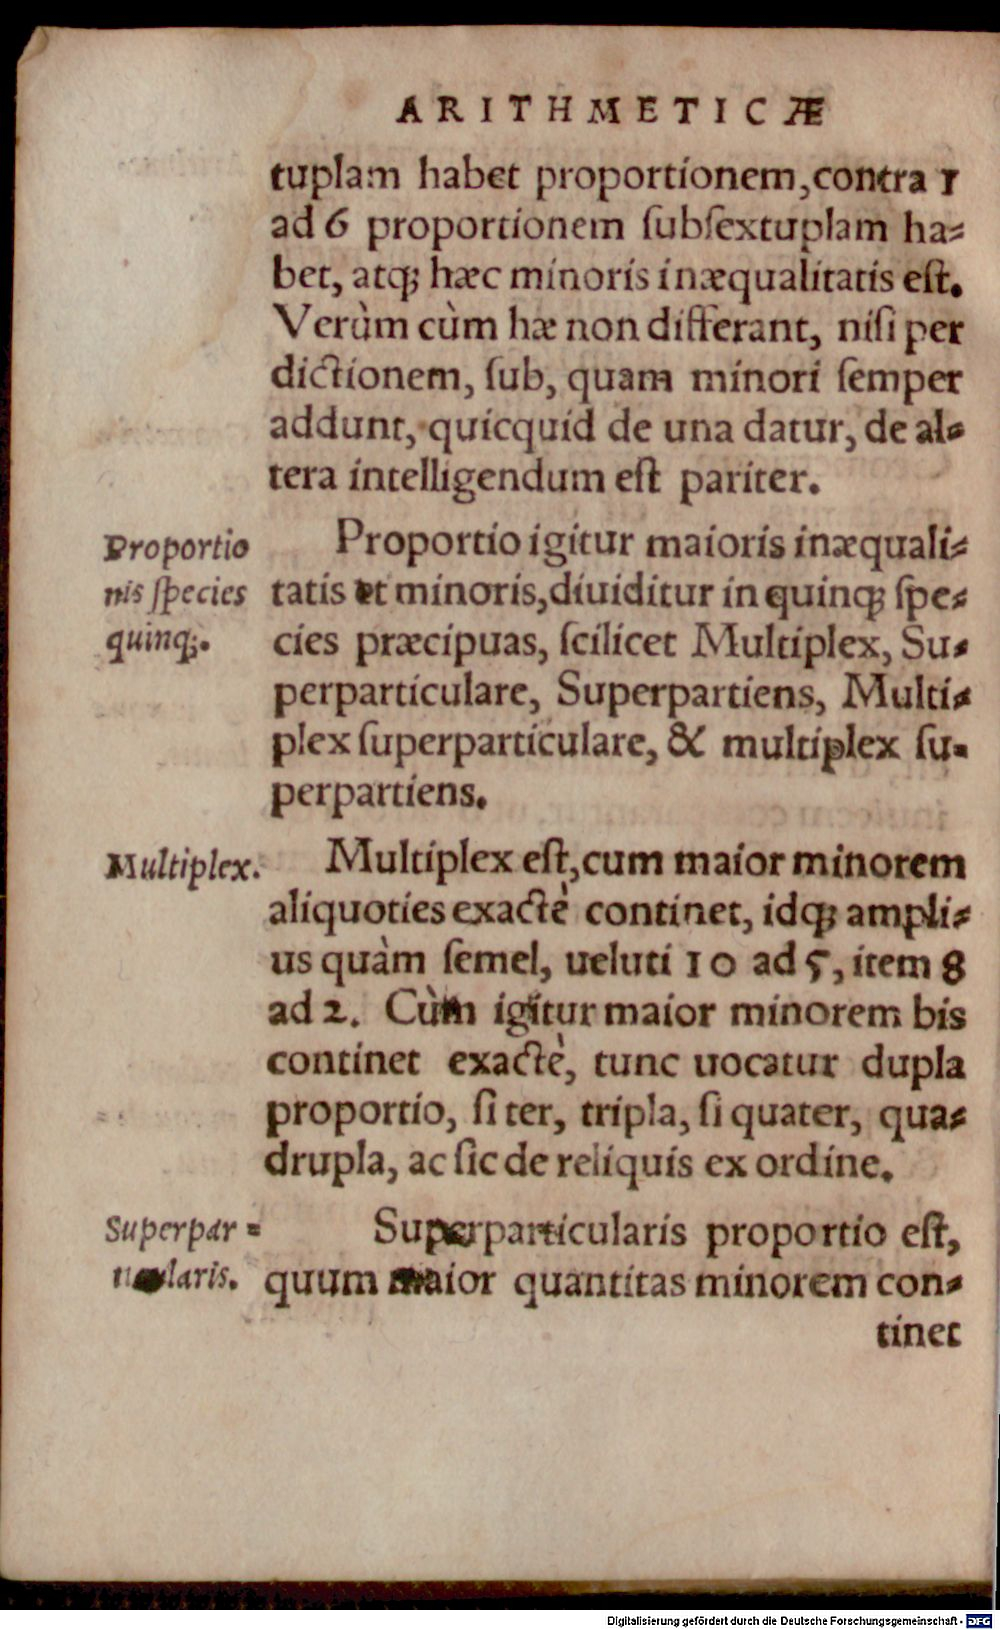 ARITHMETICÆ
tuplam habet proportionem, contra 1
ad 6 proportionem ſubſextuplam ha⸗
bet, atq; hæc minoris inæqualitatis eſt.
Verùm cùm hæ non differant, niſi per
dictionem, ſub, quam minori ſemper
addunt, quicquid de una datur, de al⸗
tera intelligendum eſt pariter.
Proportio
nis ſpecies
quinq;.
Proportio igitur maioris inæquali⸗
tatis et minoris, diuiditur in quinq; ſpe⸗
cies præcipuas, ſcilicet Multiplex, Su⸗
perparticulare, Superpartiens, Multi⸗
plex ſuperparticulare, & multiplex ſu⸗
perpartiens.
Multiplex.
Multiplex eſt, cum maior minorem
aliquoties exactè continet, idq; ampli⸗
us quàm ſemel, ueluti 10 ad 5, item 8
ad 2. Cùm igitur maior minorem bis
continet exactè, tunc uocatur dupla
proportio, ſi ter, tripla, ſi quater, qua⸗
drupla, ac ſic de reliquis ex ordine.
Superpar⸗
ticularis.
Superparticularis proportio eſt,
quum maior quantitas minorem con⸗
tinet
Digitalisierung gefördert durch die Deutsche Forschungsgemeinschaft - DFG